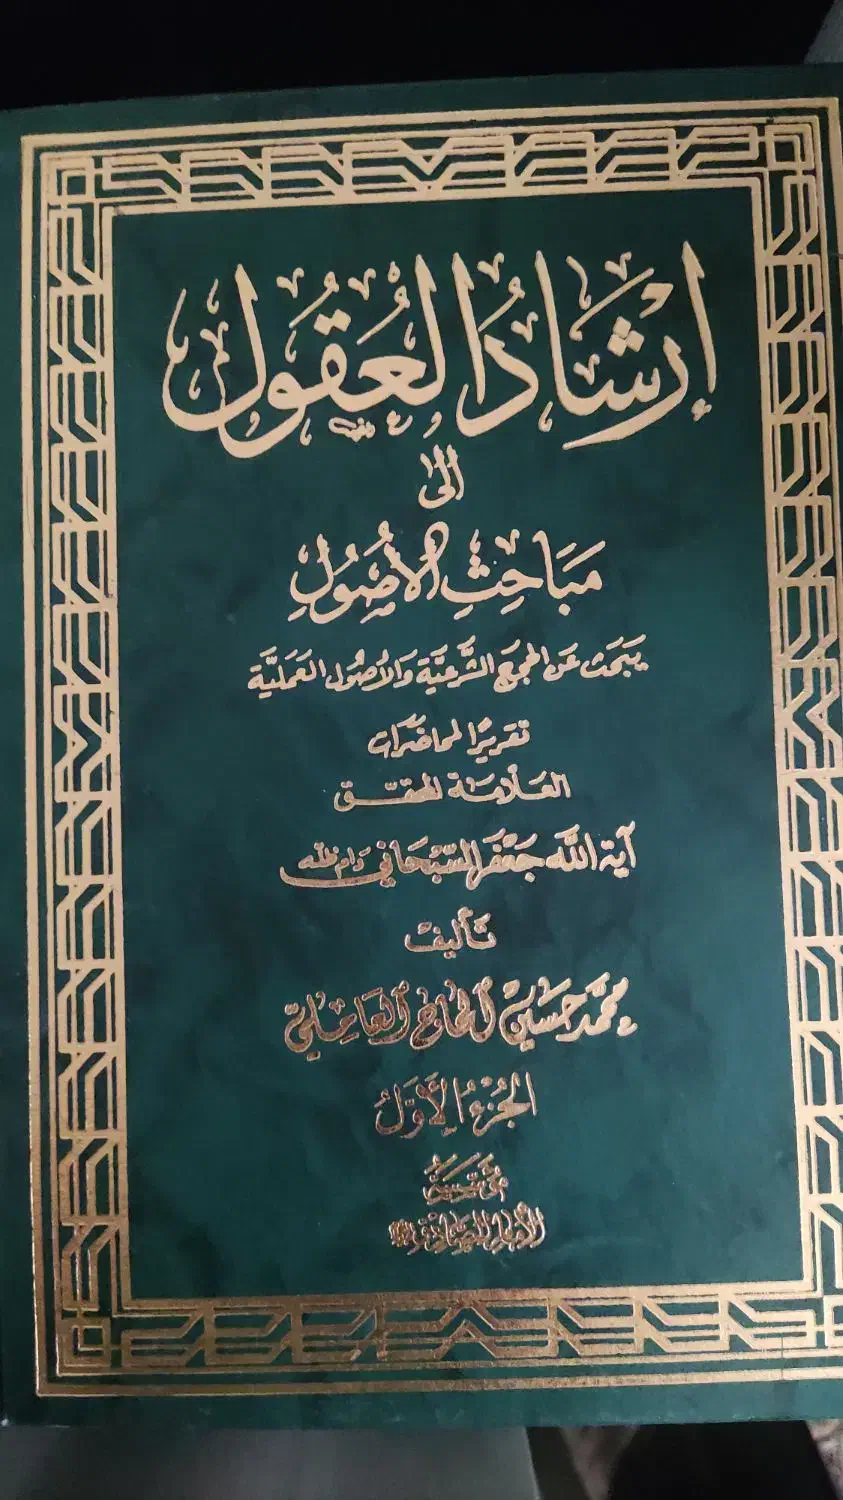 إرشَادُ العُقُول
إلى
مَبَاحِثِ الأُصُولِ
يَبحَث عَن الحجج الشَّرعيَّة وَالأصُول العَمَليَّة
تقريرًا لمحاضَرات
العَلّامَة المحقق
آية اللّه جَعفَر السُّبحَاني دام ظله
تَأليف
محمّد حسَين الحاج العَامِليّ
الجُزءُ الأوَّلُ
مؤسّسَة
الإمام الصادق